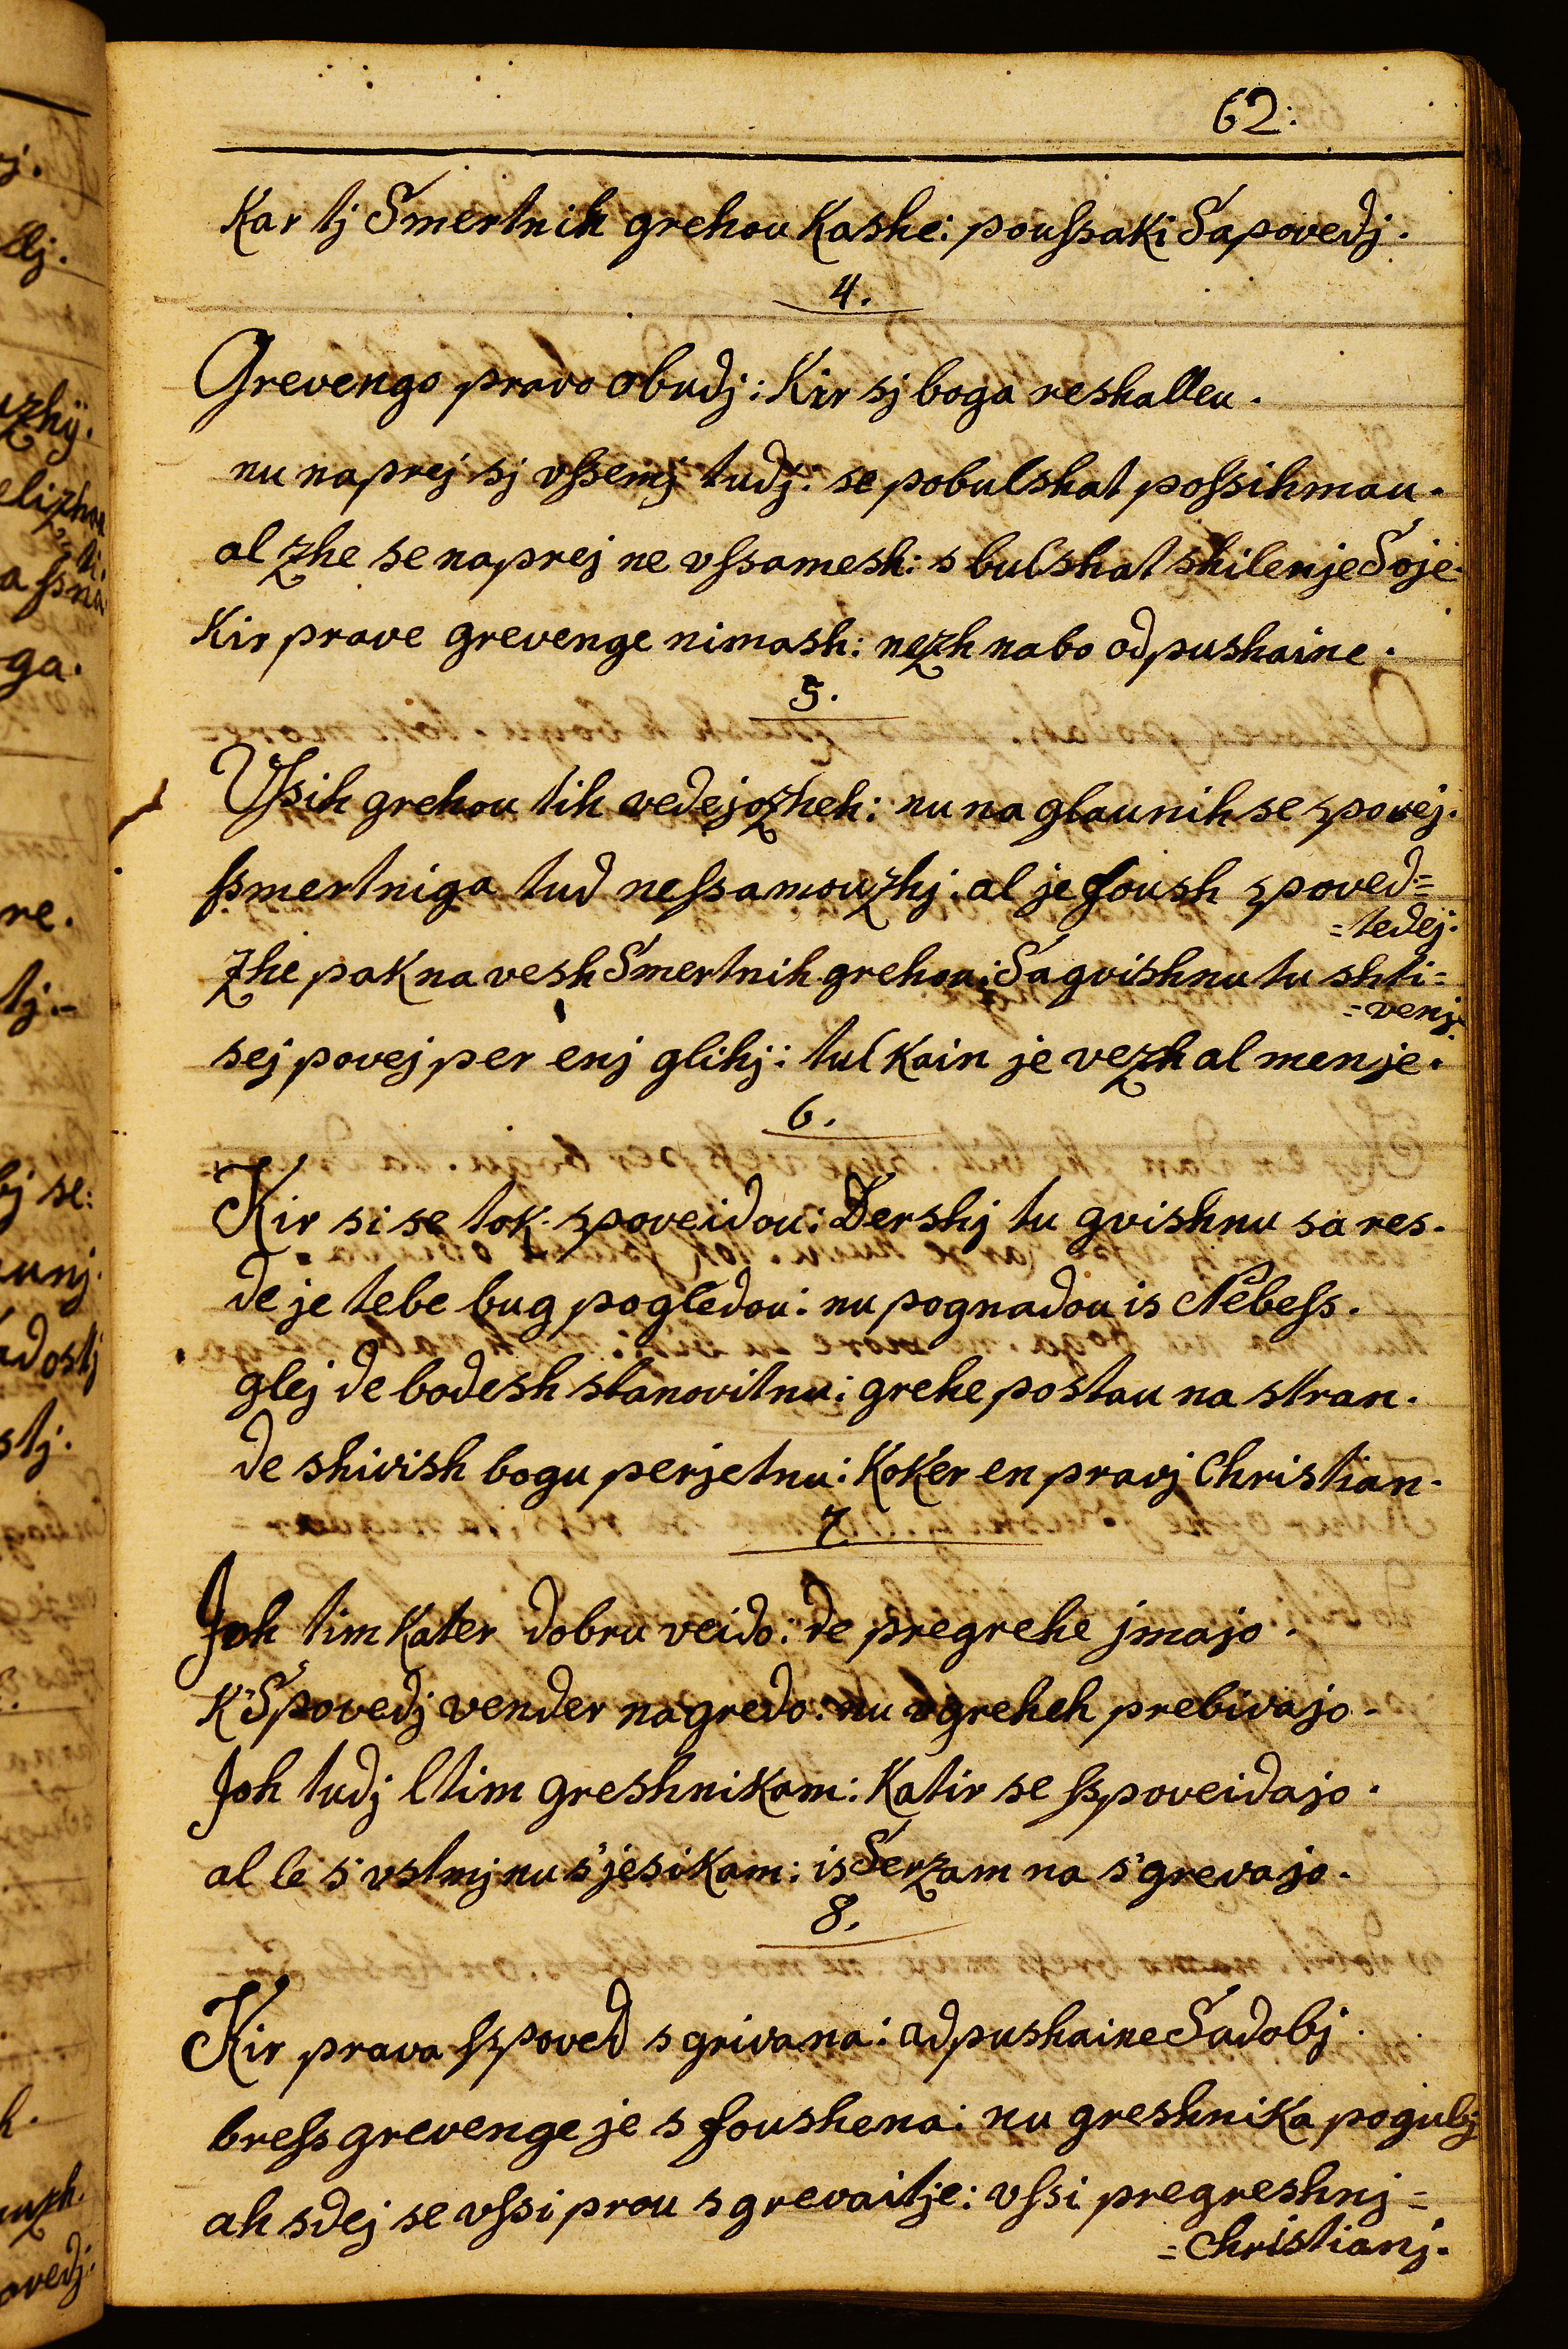 62.
Kar tj Smertnih grehou kashe: poussaki Sapovedj.
4.
Grevengo pravo obudj: Kir sj boga reshalleu.
nu naprej sj vssemj tudj: se pobulshat possihmau.
al zhe se naprej ne vssamesh: s bulshat shilenje Soje.
Kir prave grevenge nimash: nezh nabo odpushaine.
5.
Vssih grehou tih vedejozheh: nu na glaunih se spovej.
ssmertniga tud nessamouzhj: al je foush spoved=
=tedej.
zhe pak na vesh Smertnih grehou: Sa gvishnu tu shti=
=venj
sej povej per enj glihj: tulkain je vezh al menje.
6.
Kir si se tok spoveidou: Dershj tu gvishnu sa res.
de je tebe bug pogledou: nu pognadou is Nebess.
glej de bodesh stanovitnu: grehe postau na stran.
de shivish bogu perjetnu: Koker en pravj Christian.
7.
Joh tim kater dobru veido: de pregrehe jmajo.
K'Spovedj vender nagredo: nu v greheh prebivajo.
Joh tudj ltim greshnikam: Katir se sspoveidajo.
al le s'vstmj nu s'jesikam: is Serzam na s'grevajo.
8.
Kir prava sspoved s grivana: adpushaine Sadobj.
bress grevenge je s foushena: nu greshnika pogubj
ah sdej se vssi prou s grevaitje: vssi pregreshnj=
=Christianj.